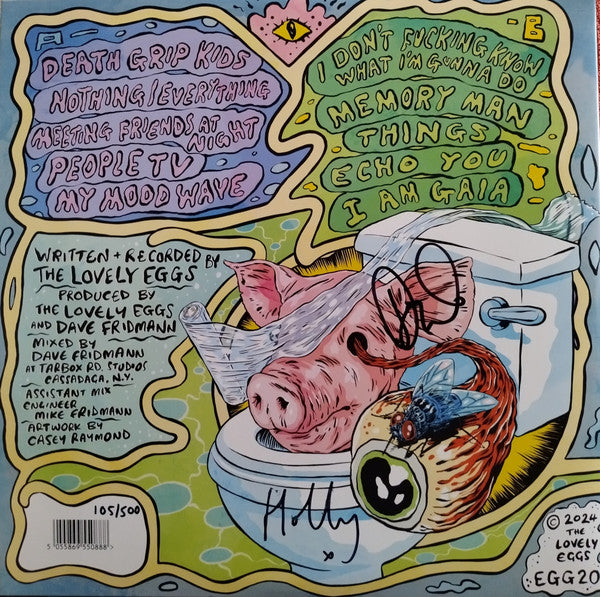 A-
DEATH GRIP KIDS
NOTHING/EVERYTHING
MEETING FRIENDS AT
NIGHT
PEOPLE TV
MY MOOD WAVE
-B
I DON'T FUCKING KNOW
WHAT I'M GUNNA DO
MEMORY MAN
THINGS
ECHO YOU
I AM GAIA
WRITTEN + RECORDED BY
THE LOVELY EGGS
PRODUCED BY
THE LOVELY EGGS
AND DAVE FRIDMANN
MIXED BY
DAVE FRIDMANN
AT TARBOX RD. STUDIOS
CASSADAGA, N.Y.
ASSISTANT MIX
ENGINEER
MIKE FRIDMANN
ARTWORK BY
CASEY RAYMOND
Holly
x
105/500
5 055869 550888 >
© 2024
THE
LOVELY
EGGS
EGG20